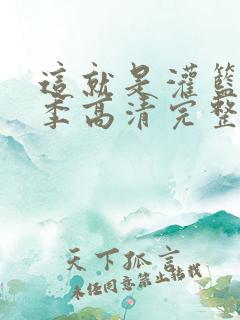 這就是灌籃
季高清完整
天下孤言
未经同意禁止转载